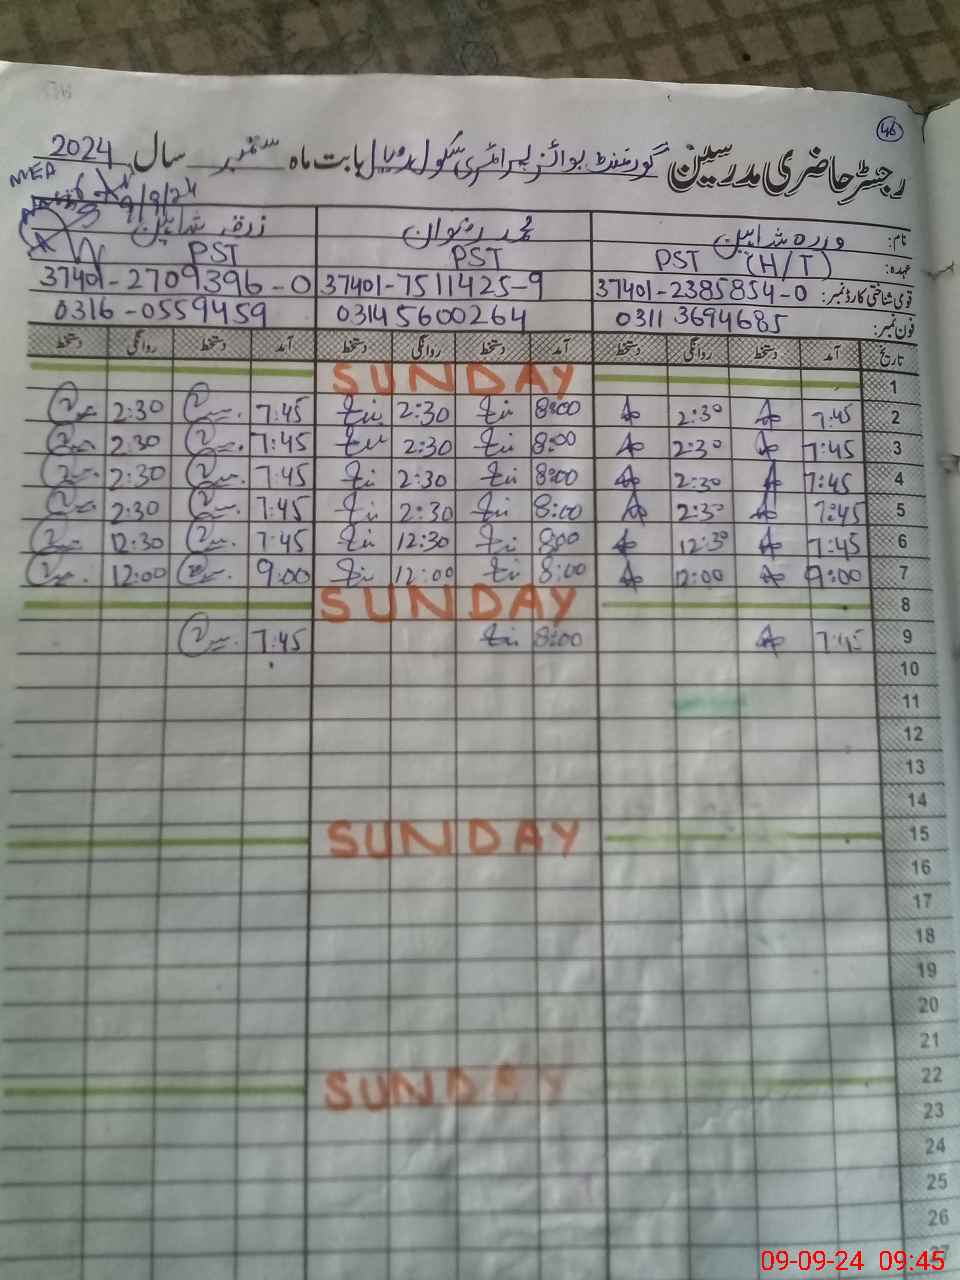 46
رجسٹر حاضری مدرسین گورنمنٹ بوائز ایلیمنٹری سکول بابت ماہ ستمبر سال 2024
MEA
9/9/24
نام: وردہ شاہین محمد رضوان زرقہ شاہین
عہدہ: PST (H/T) PST PST
قومی شناختی کارڈ نمبر: 37401-2385854-0 37401-7511425-9 37401-2709396-0
فون نمبر: 0311 3694685 03145600264 0316-0559459
تاریخ آمد دستخط روانگی دستخط آمد دستخط روانگی دستخط آمد دستخط روانگی دستخط
1 SUNDAY
2 7:45 2:30 8:00 2:30 7:45 2:30
3 7:45 2:30 8:00 2:30 7:45 2:30
4 7:45 2:30 8:00 2:30 7:45 2:30
5 7:45 2:30 8:00 2:30 7:45 2:30
6 7:45 12:30 8:00 12:30 7:45 12:30
7 9:00 12:00 8:00 12:00 9:00 12:00
8 SUNDAY
9 7:45 8:00 7:45
10
11
12
13
14
15 SUNDAY
16
17
18
19
20
21
22 SUNDAY
23
24
25
26
27
09-09-24 09:45